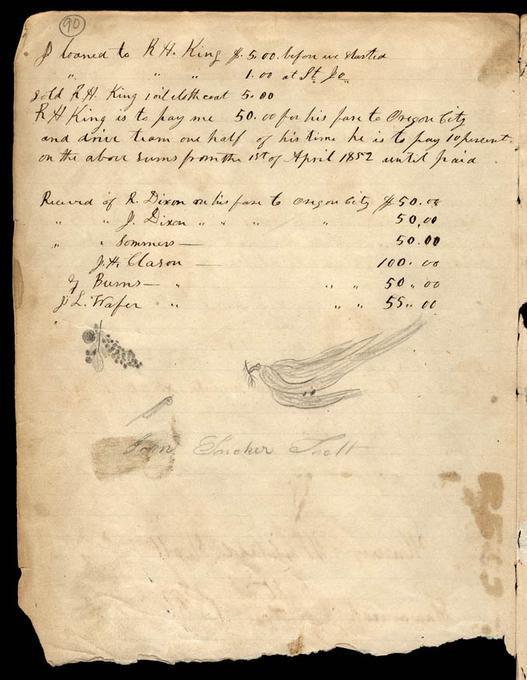 90
I loaned to R. H. King $5.00 before we started
" " " 1.00 at St. Jo
Sold R. H. King 1 oil cloth coat 5.00
R H King is to pay me 50.00 for his fare to Oregon City
and drive team one half of his time he is to pay 10 percent
on the above sums from the 1st of April 1852 until paid
Received of R. Dixon on his fare to Oregon City $50.00
" " J. Dixon " " " " 50.00
" " Sommers — 50.00
J. H. Clason — 100.00
Burns — " " " 50.00
L. Wafer " " " 55.00
Tucker Scott